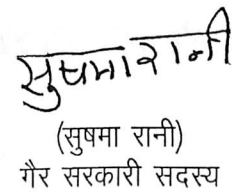 सुषमा रानी
(सुषमा रानी)
गैर सरकारी सदस्य